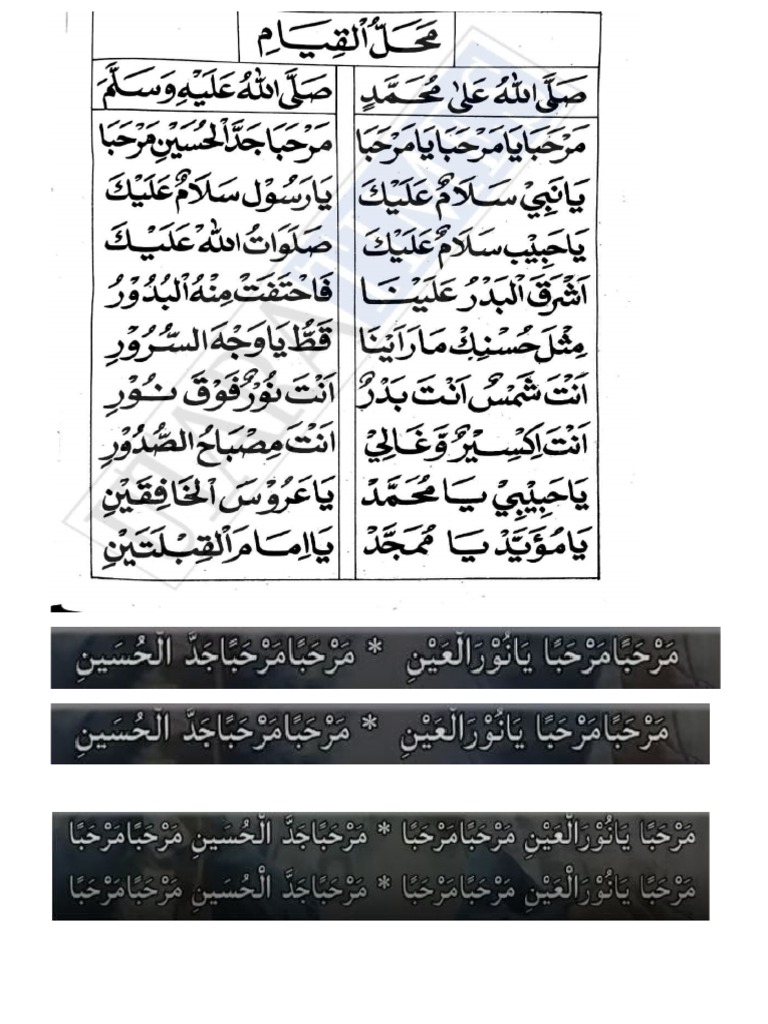 مَحَلُّ الْقِيَامِ
صَلَّى اللهُ عَلٰى مُحَمَّدٍ صَلَّى اللهُ عَلَيْهِ وَسَلَّمَ
مَرْحَبَا يَا مَرْحَبَا يَا مَرْحَبَا مَرْحَبَا جَدَّ الْحُسَيْنِ مَرْحَبَا
يَا نَبِيْ سَلَامٌ عَلَيْكَ يَا رَسُوْل سَلَامٌ عَلَيْكَ
يَا حَبِيْب سَلَامٌ عَلَيْكَ صَلَوَاتُ اللهْ عَلَيْكَ
اَشْرَقَ الْبَدْرُ عَلَيْنَا فَاحْتَفَتْ مِنْهُ الْبُدُوْرُ
مِثْلَ حُسْنِكْ مَا رَاَيْنَا قَطُّ يَا وَجْهَ السُّرُوْرِ
اَنْتَ شَمْسٌ اَنْتَ بَدْرٌ اَنْتَ نُوْرٌ فَوْقَ نُوْرِ
اَنْتَ اِكْسِيْرٌ وَّغَالِيْ اَنْتَ مِصْبَاحُ الصُّدُوْرِ
يَا حَبِيْبِيْ يَا مُحَمَّدْ يَا عَرُوْسَ الْخَافِقَيْنِ
يَا مُؤَيَّدْ يَا مُمَجَّدْ يَا اِمَامَ الْقِبْلَتَيْنِ
UJARA
مَرْحَبًا مَرْحَبًا يَا نُوْرَ الْعَيْنِ * مَرْحَبًا مَرْحَبًا جَدَّ الْحُسَيْنِ
مَرْحَبًا مَرْحَبًا يَا نُوْرَ الْعَيْنِ * مَرْحَبًا مَرْحَبًا جَدَّ الْحُسَيْنِ
مَرْحَبًا يَا نُوْرَ الْعَيْنِ مَرْحَبًا مَرْحَبًا * مَرْحَبًا جَدَّ الْحُسَيْنِ مَرْحَبًا مَرْحَبًا
مَرْحَبًا يَا نُوْرَ الْعَيْنِ مَرْحَبًا مَرْحَبًا * مَرْحَبًا جَدَّ الْحُسَيْنِ مَرْحَبًا مَرْحَبًا